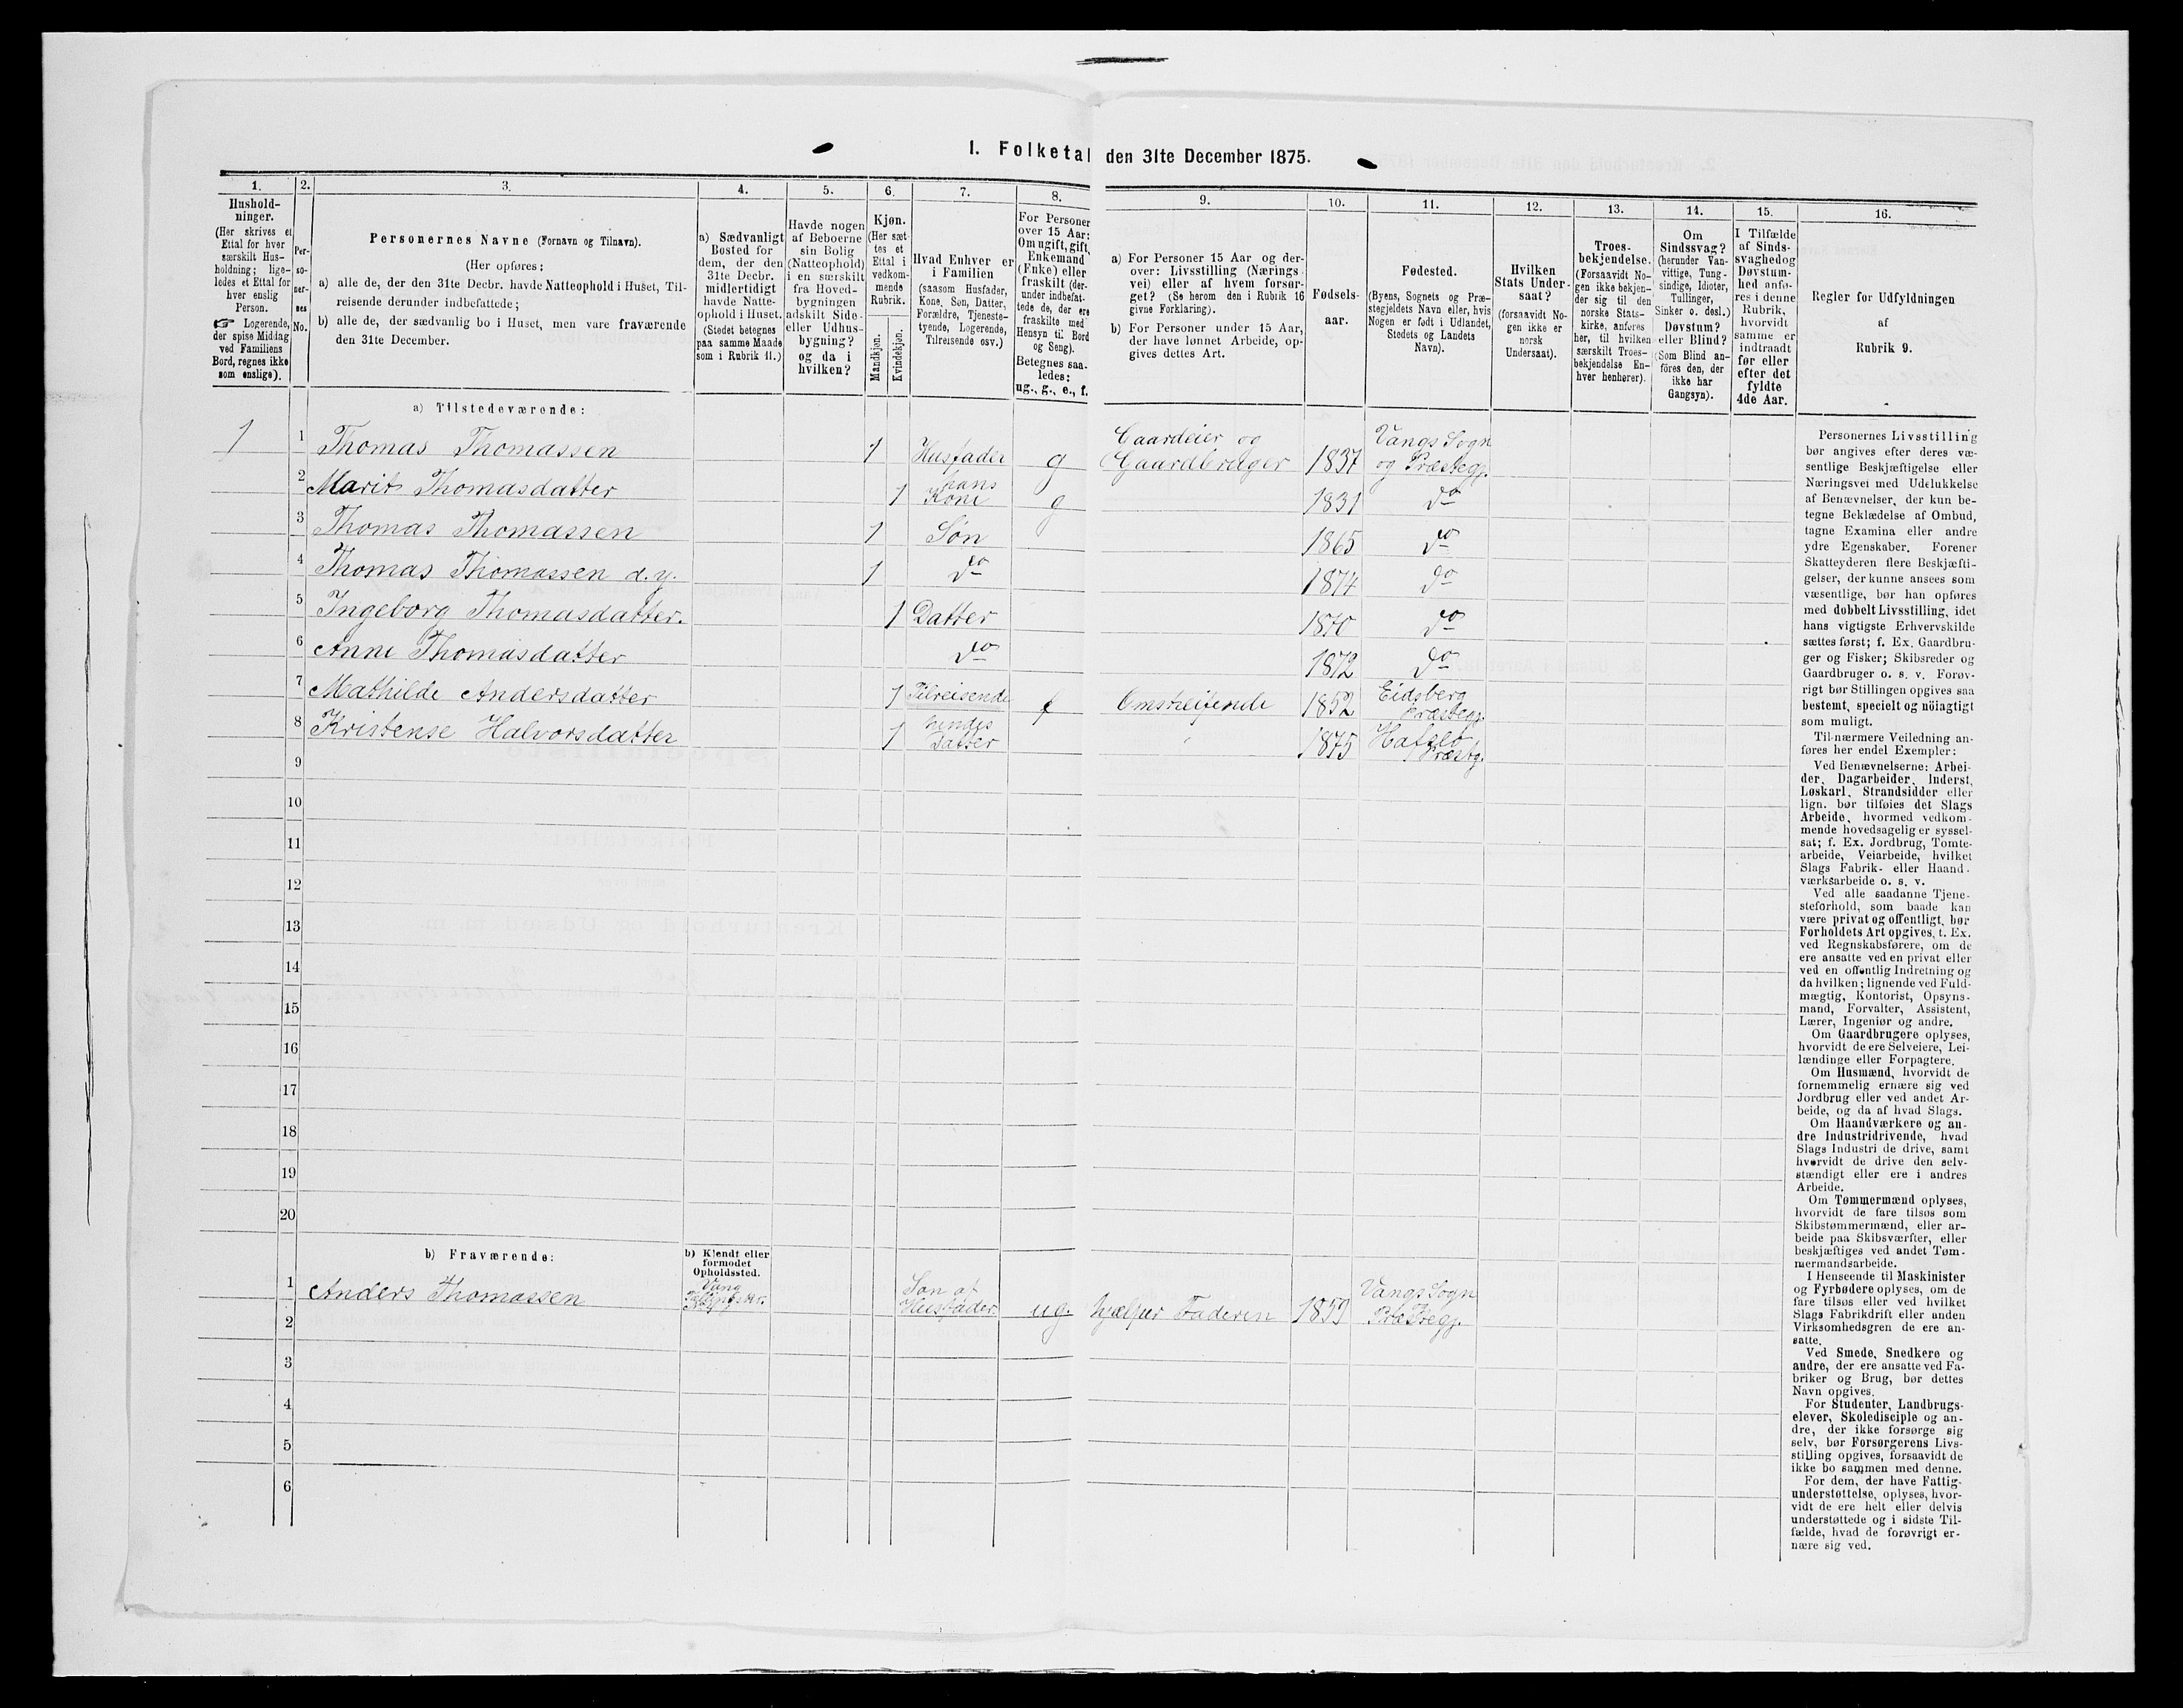 I. Folketal den 31te December 1875.
1.
Hushold-
ninger.
(Her skrives et
Ettal for hver
særskilt Hus-
holdning; lige-
ledes et Ettal for
hver enslig
Person.
☞ Logerende,
der spise Middag
ved Familiens
Bord, regnes ikke
som enslige).
2.
Per-
so-
ner-
nes
No.
3.
Personernes Navne (Fornavn og Tilnavn).
(Her opføres:
a) alle de, der den 31te Decbr. havde Natteophold i Huset, Til-
reisende derunder indbefattede;
b) alle de, der sædvanlig bo i Huset, men vare fraværende
den 31te December.
4.
a) Sædvanligt
Bosted for
dem, der den
31te Decbr.
midlertidigt
havde Natte-
ophold i Huset.
(Stedet betegnes
paa samme Maade
som i Rubrik 11.)
5.
Havde nogen
af Beboerne
sin Bolig
(Natteophold)
i en særskilt
fra Hoved-
bygningen
adskilt Side-
eller Udhus-
bygning?
og da i
hvilken?
6.
Kjøn.
(Her sæt-
tes et
Ettal i
vedkom-
mende
Rubrik.
Mandkjøn.
Kvindekjøn.
7.
Hvad Enhver er
i Familien
(saasom Husfader,
Kone, Søn, Datter,
Forældre, Tjeneste-
tyende, Logerende,
Tilreisende osv.)
8.
For Personer
over 15 Aar:
Om ugift, gift,
Enkemand
(Enke) eller
fraskilt (der-
under indbefat-
tede de, der ere
fraskilte med
Hensyn til Bord
og Seng).
Betegnes saa-
ledes:
ug., g., e., f.
9.
a) For Personer 15 Aar og der-
over: Livsstilling (Nærings-
vei) eller af hvem forsør-
get? (Se herom den i Rubrik 16
givne Forklaring).
b) For Personer under 15 Aar,
der have lønnet Arbeide, op-
gives dettes Art.
10.
Fødsels-
aar.
11.
Fødested.
(Byens, Sognets og Præ-
stegjeldets Navn eller, hvis
Nogen er født i Udlandet,
Stedets og Landets
Navn).
12.
Hvilken
Stats Under-
saat?
(forsaavidt No-
gen ikke er
norsk
Undersaat).
13.
Troes-
bekjendelse.
(Forsaavidt No-
gen ikke bekjen-
der sig til den
norske Stats-
kirke, anføres
her, til hvilken
særskilt Troes-
bekjendelse En-
hver henhører).
14.
Om
Sindssvag?
(herunder Van-
vittige, Tung-
sindige, Idioter,
Tullinger,
Sinker o. desl.)
Døvstum?
eller Blind?
(Som Blind an-
føres den, der
ikke har
Gangsyn).
15.
I Tilfælde
af Sinds-
svaghed og
Døvstum-
hed anfø-
res i denne
Rubrik,
hvorvidt
samme er
indtraadt
før eller
efter det
fyldte
4de Aar.
16.
Regler for Udfyldningen
af
Rubrik 9.
a) Tilstedeværende:
1 1 Thomas Thomassen 1 Husfader g Gaardeier og Gaardbruger 1837 Vangs Sogn og Præstegj.
2 Marit Thomasdatter 1 hans Kone g 1831 do
3 Thomas Thomassen 1 Søn 1865 do
4 Thomas Thomassen d. y. 1 do 1874 do
5 Ingeborg Thomasdatter. 1 Datter 1870 do
6 Anne Thomasdatter do 1872 do
7 Mathilde Andersdatter 1 Tilreisende Omstreifende 1852 Eidsberg Præstegj.
8 Kristense Halvorsdatter 1 hendes Datter 1875 Præstg.
9
10
11
12
13
14
15
16
17
18
19
20
b) Fraværende:
b) Kjendt eller
formodet
Opholdssted.
1 Anders Thomassen Vang Søn af Husfader. ug. hjælper Faderen 1859 Vangs Sogn Præstegj.
2
3
4
5
6
Personernes Livsstilling
bør angives efter deres væ-
sentlige Beskjæftigelse eller
Næringsvei med Udelukkelse
af Benævnelser, der kun be-
tegne Beklædelse af Ombud,
tagne Examina eller andre
ydre Egenskaber. Forener
Skatteyderen flere Beskjæfti-
gelser, der kunne ansees som
væsentlige, bør han opføres
med dobbelt Livsstilling, idet
hans vigtigste Erhvervskilde
sættes først; f. Ex. Gaardbru-
ger og Fisker; Skibsreder og
Gaardbruger o. s. v. Forøv-
rigt bør Stillingen opgives saa
bestemt, specielt og nöiagtigt
som muligt.
Til nærmere Veiledning an-
føres her endel Exempler:
Ved Benævnelserne: Arbei-
der, Dagarbeider, Inderst,
Løskarl, Strandsidder eller
lign. bør tilføies det Slags
Arbeide, hvormed vedkom-
mende hovedsagelig er syssel-
sat; f. Ex. Jordbrug, Tomte-
arbeide, Veiarbeide, hvilket
Slags Fabrik- eller Haand-
værksarbeide o. s. v.
Ved alle saadanne Tjene-
steforhold, som baade kan
være privat og offentligt, bør
Forholdets Art opgives, f. Ex.
ved Regnskabsførere, om de
ere ansatte ved en privat eller
ved en offentlig Indretning og
da hvilken; lignende ved Fuld-
mægtig, Kontorist, Opsyns-
mand, Forvalter, Assistent,
Lærer, Ingeniør og andre.
Om Gaardbrugere oplyses,
hvorvidt de ere Selveiere, Lei-
lændinge eller Forpagtere.
Om Husmænd, hvorvidt de
fornemmelig ernære sig ved
Jordbrug eller ved andet Ar-
beide, og da af hvad Slags.
Om Haandværkere og an-
dre Industridrivende, hvad
Slags Industri de drive, samt
hvorvidt de drive den selv-
stændigt eller ere i andres
Arbeide.
Om Tømmermænd oplyses,
hvorvidt de fare tilsøs som
Skibstømmermænd, eller ar-
beide paa Skibsværfter, eller
beskjæftiges ved andet Tøm-
mermandsarbeide.
I Henseende til Maskinister
og Fyrbødere oplyses, om de
fare tilsøs eller ved hvilket
Slags Fabrikdrift eller anden
Virksomhedsgren de ere an-
satte.
Ved Smede, Snedkere og
andre, der ere ansatte ved Fa-
briker og Brug, bør dettes
Navn opgives.
For Studenter, Landbrugs-
elever, Skoledisciple og an-
dre, der ikke forsørge sig
selv, bør Forsørgerens Livs-
stilling opgives, forsaavidt de
ikke bo sammen med denne.
For dem, der have Fattig-
understøttelse, oplyses, hvor-
vidt de ere helt eller delvis
understøttede og i sidste Til-
fælde, hvad de forøvrigt er-
nære sig ved.